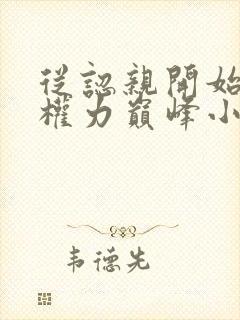 從認親開始
權力巔峰小
韦德先